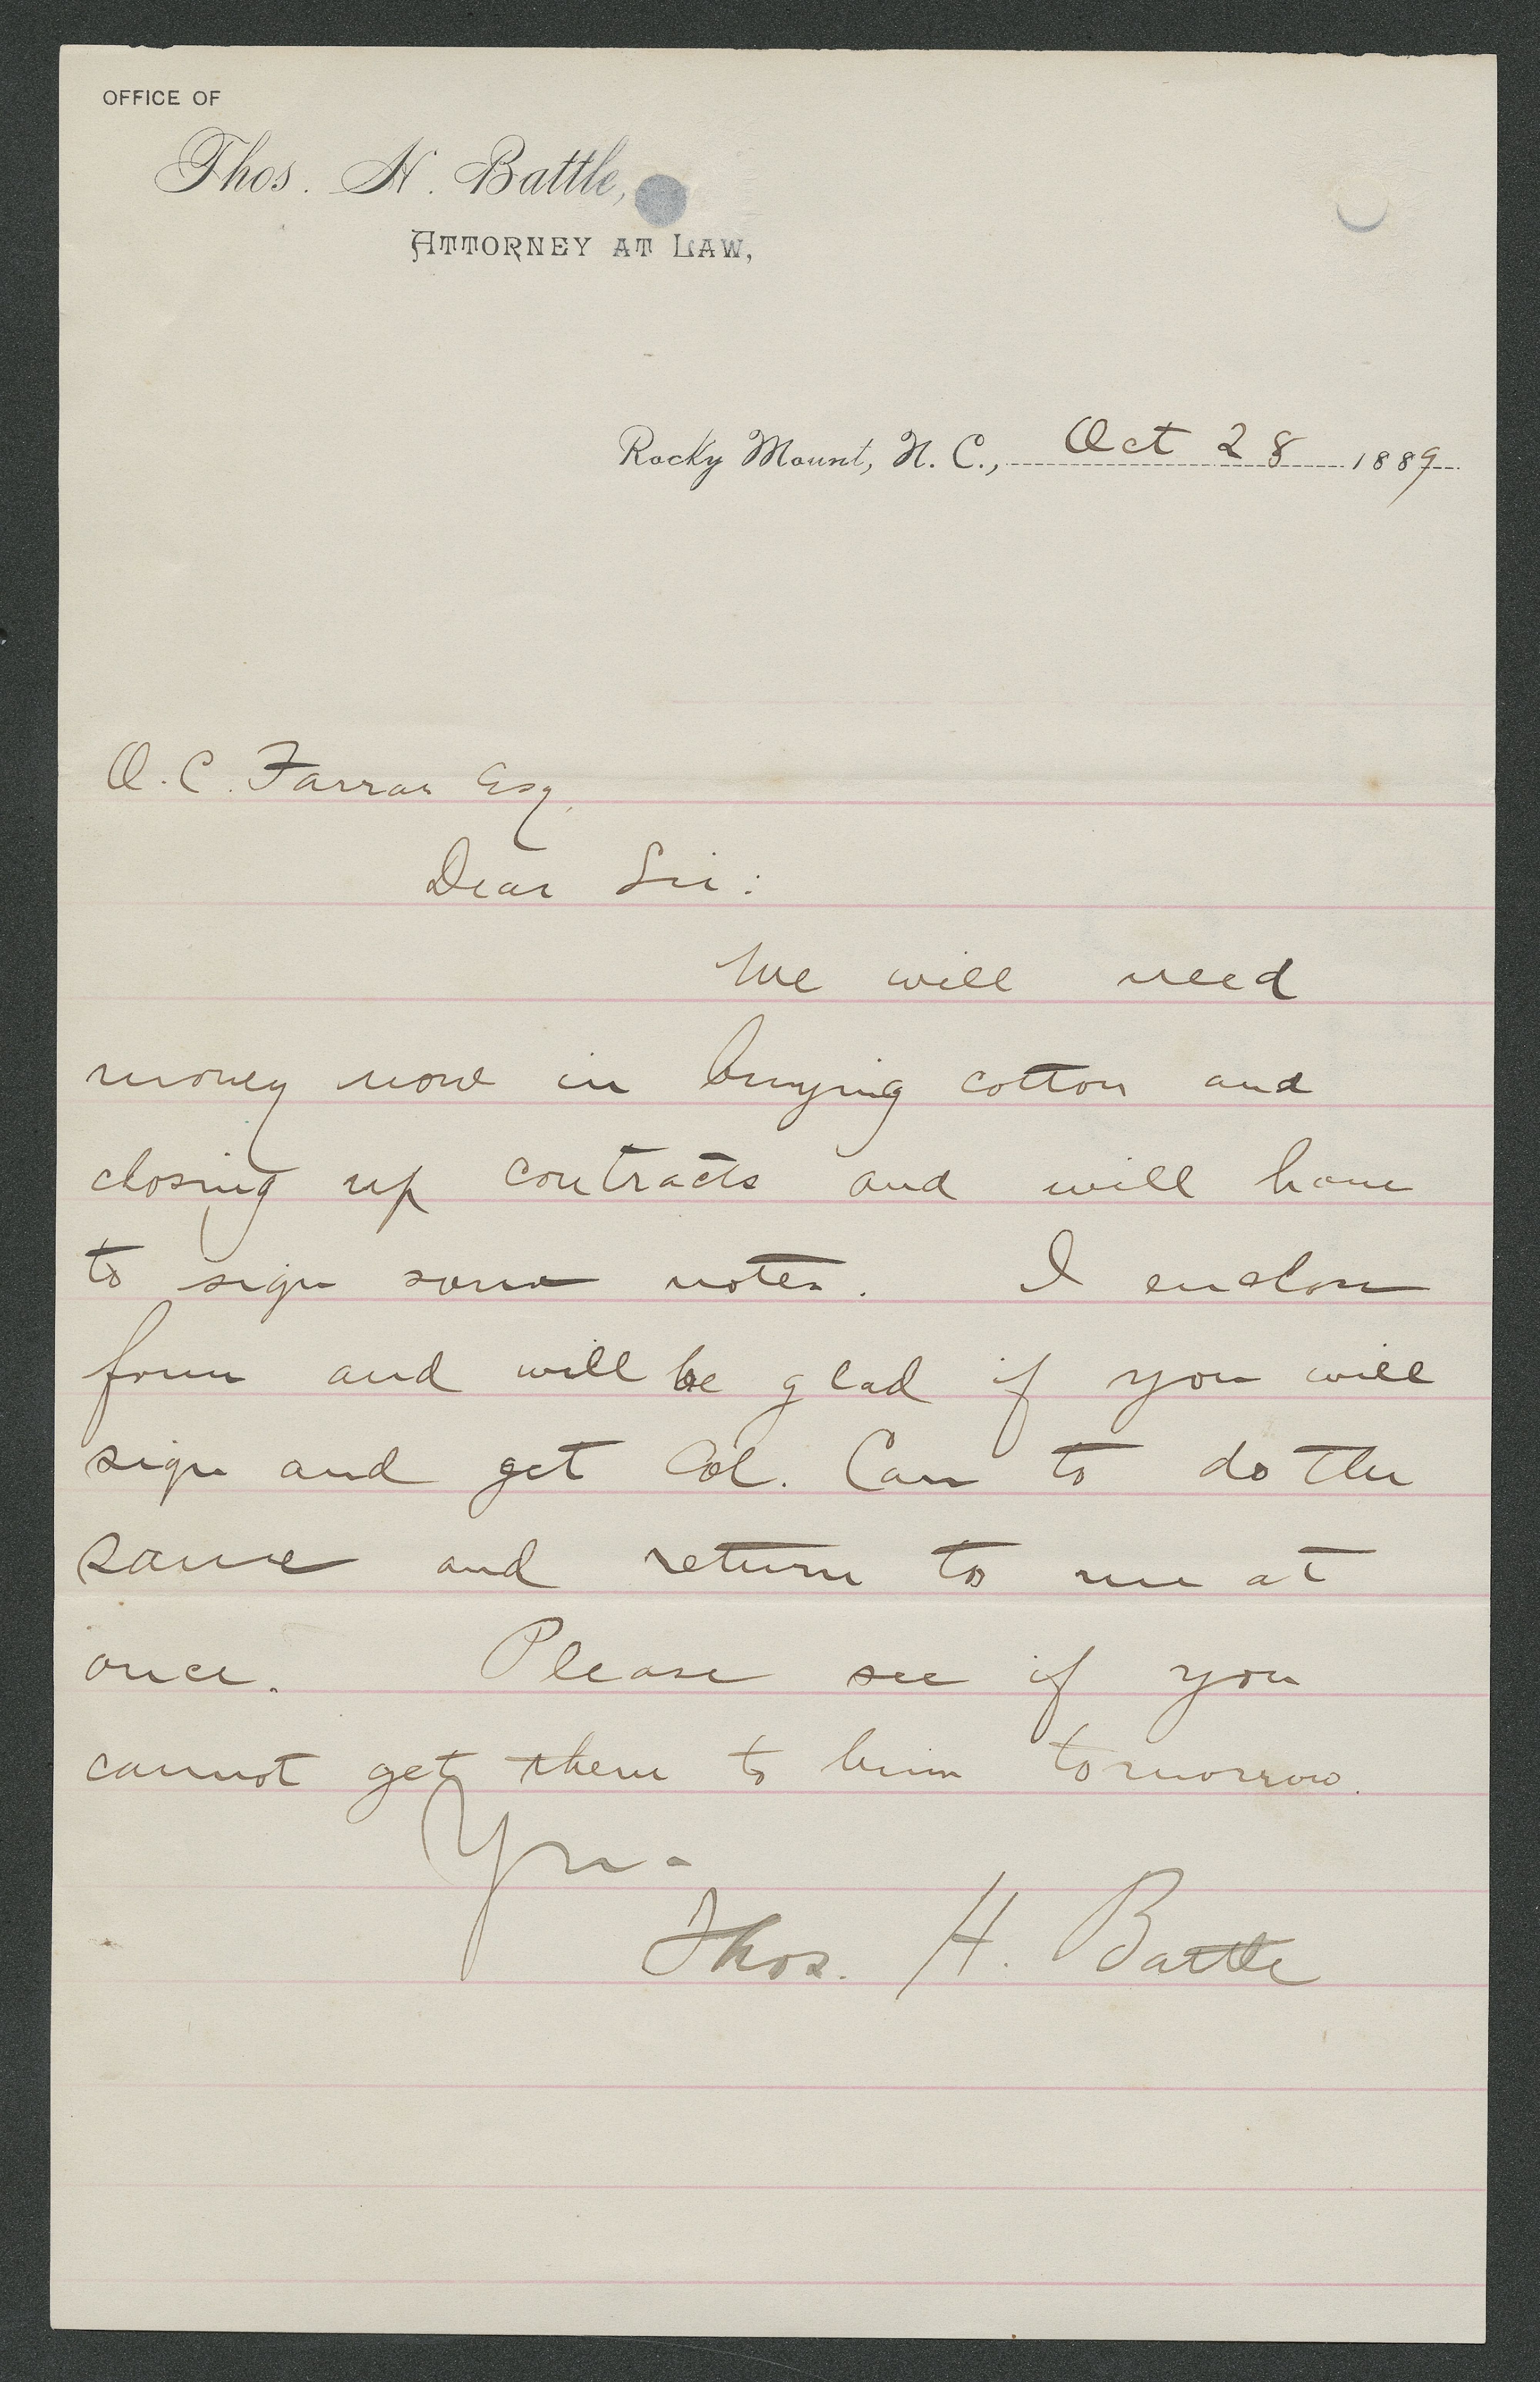 OFFICE OF
Thos. H. Battle,
ATTORNEY AT LAW,
Rocky Mount, N. C., Oct 28 1889
O. C. Farrar Esq.
Dear Sir:
We will need
money now in buying cotton and
closing up contracts and will have
to sign some notes. I enclose
form and will be glad if you will
sign and get Col. Carr to do the
same and return to me at
once. Please see if you
cannot get them to him tomorrow.
Yrs-
Thos. H. Battle